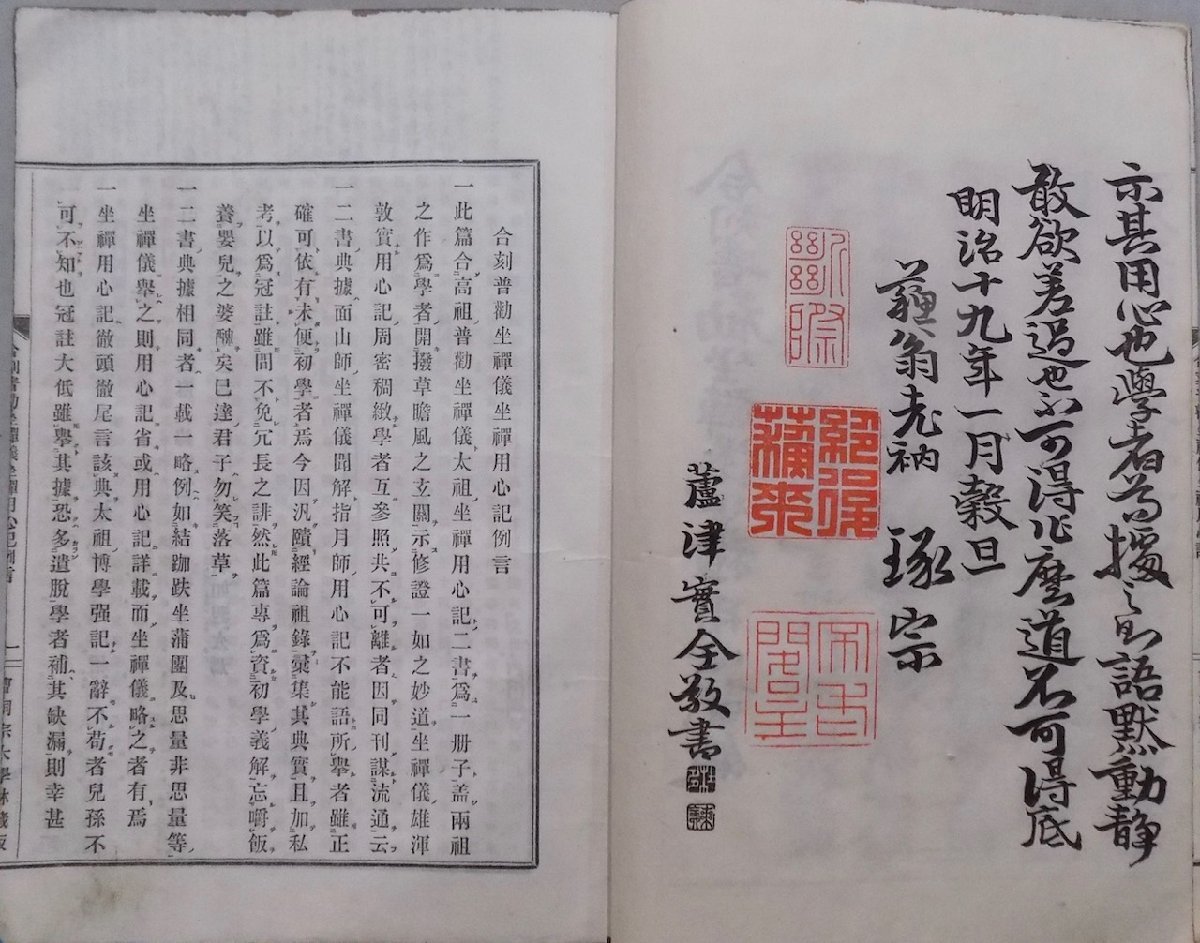 示其用心也學者若據之則語默動静
敢欲差過也不可得作麼道不可得底
明治十九年一月穀旦
蘿翁老衲 琢宗
蘆津實全敬書
合刻普勸坐禪儀坐禪用心記例言
一此篇合高祖普勸坐禪儀太祖坐禪用心記二書爲一册子盖兩祖
之作爲學者開撥草瞻風之玄關示修證一如之妙道坐禪儀雄渾
敦實用心記周密稠緻學者互參照共不可離者因同刊謀流通云
一二書典據面山師坐禪儀聞解指月師用心記不能語所擧者雖正
確可依有未便初學者焉今因汎賾經論祖錄彙集其典實且加私
考以爲冠註雖間不免冗長之誹然此篇專爲資初學義解忘嚼飯
養嬰兒之婆醜矣已達君子勿笑落草
一二書典據相同者一載一略例如結跏趺坐蒲團及思量非思量等
坐禪儀擧之則用心記省或用心記詳載而坐禪儀略之者有焉
一坐禪用心記徹頭徹尾言該典太祖博學强記一辭不苟者兒孫不
可不知也冠註大低雖擧其據恐多遺脫學者補其缺漏則幸甚